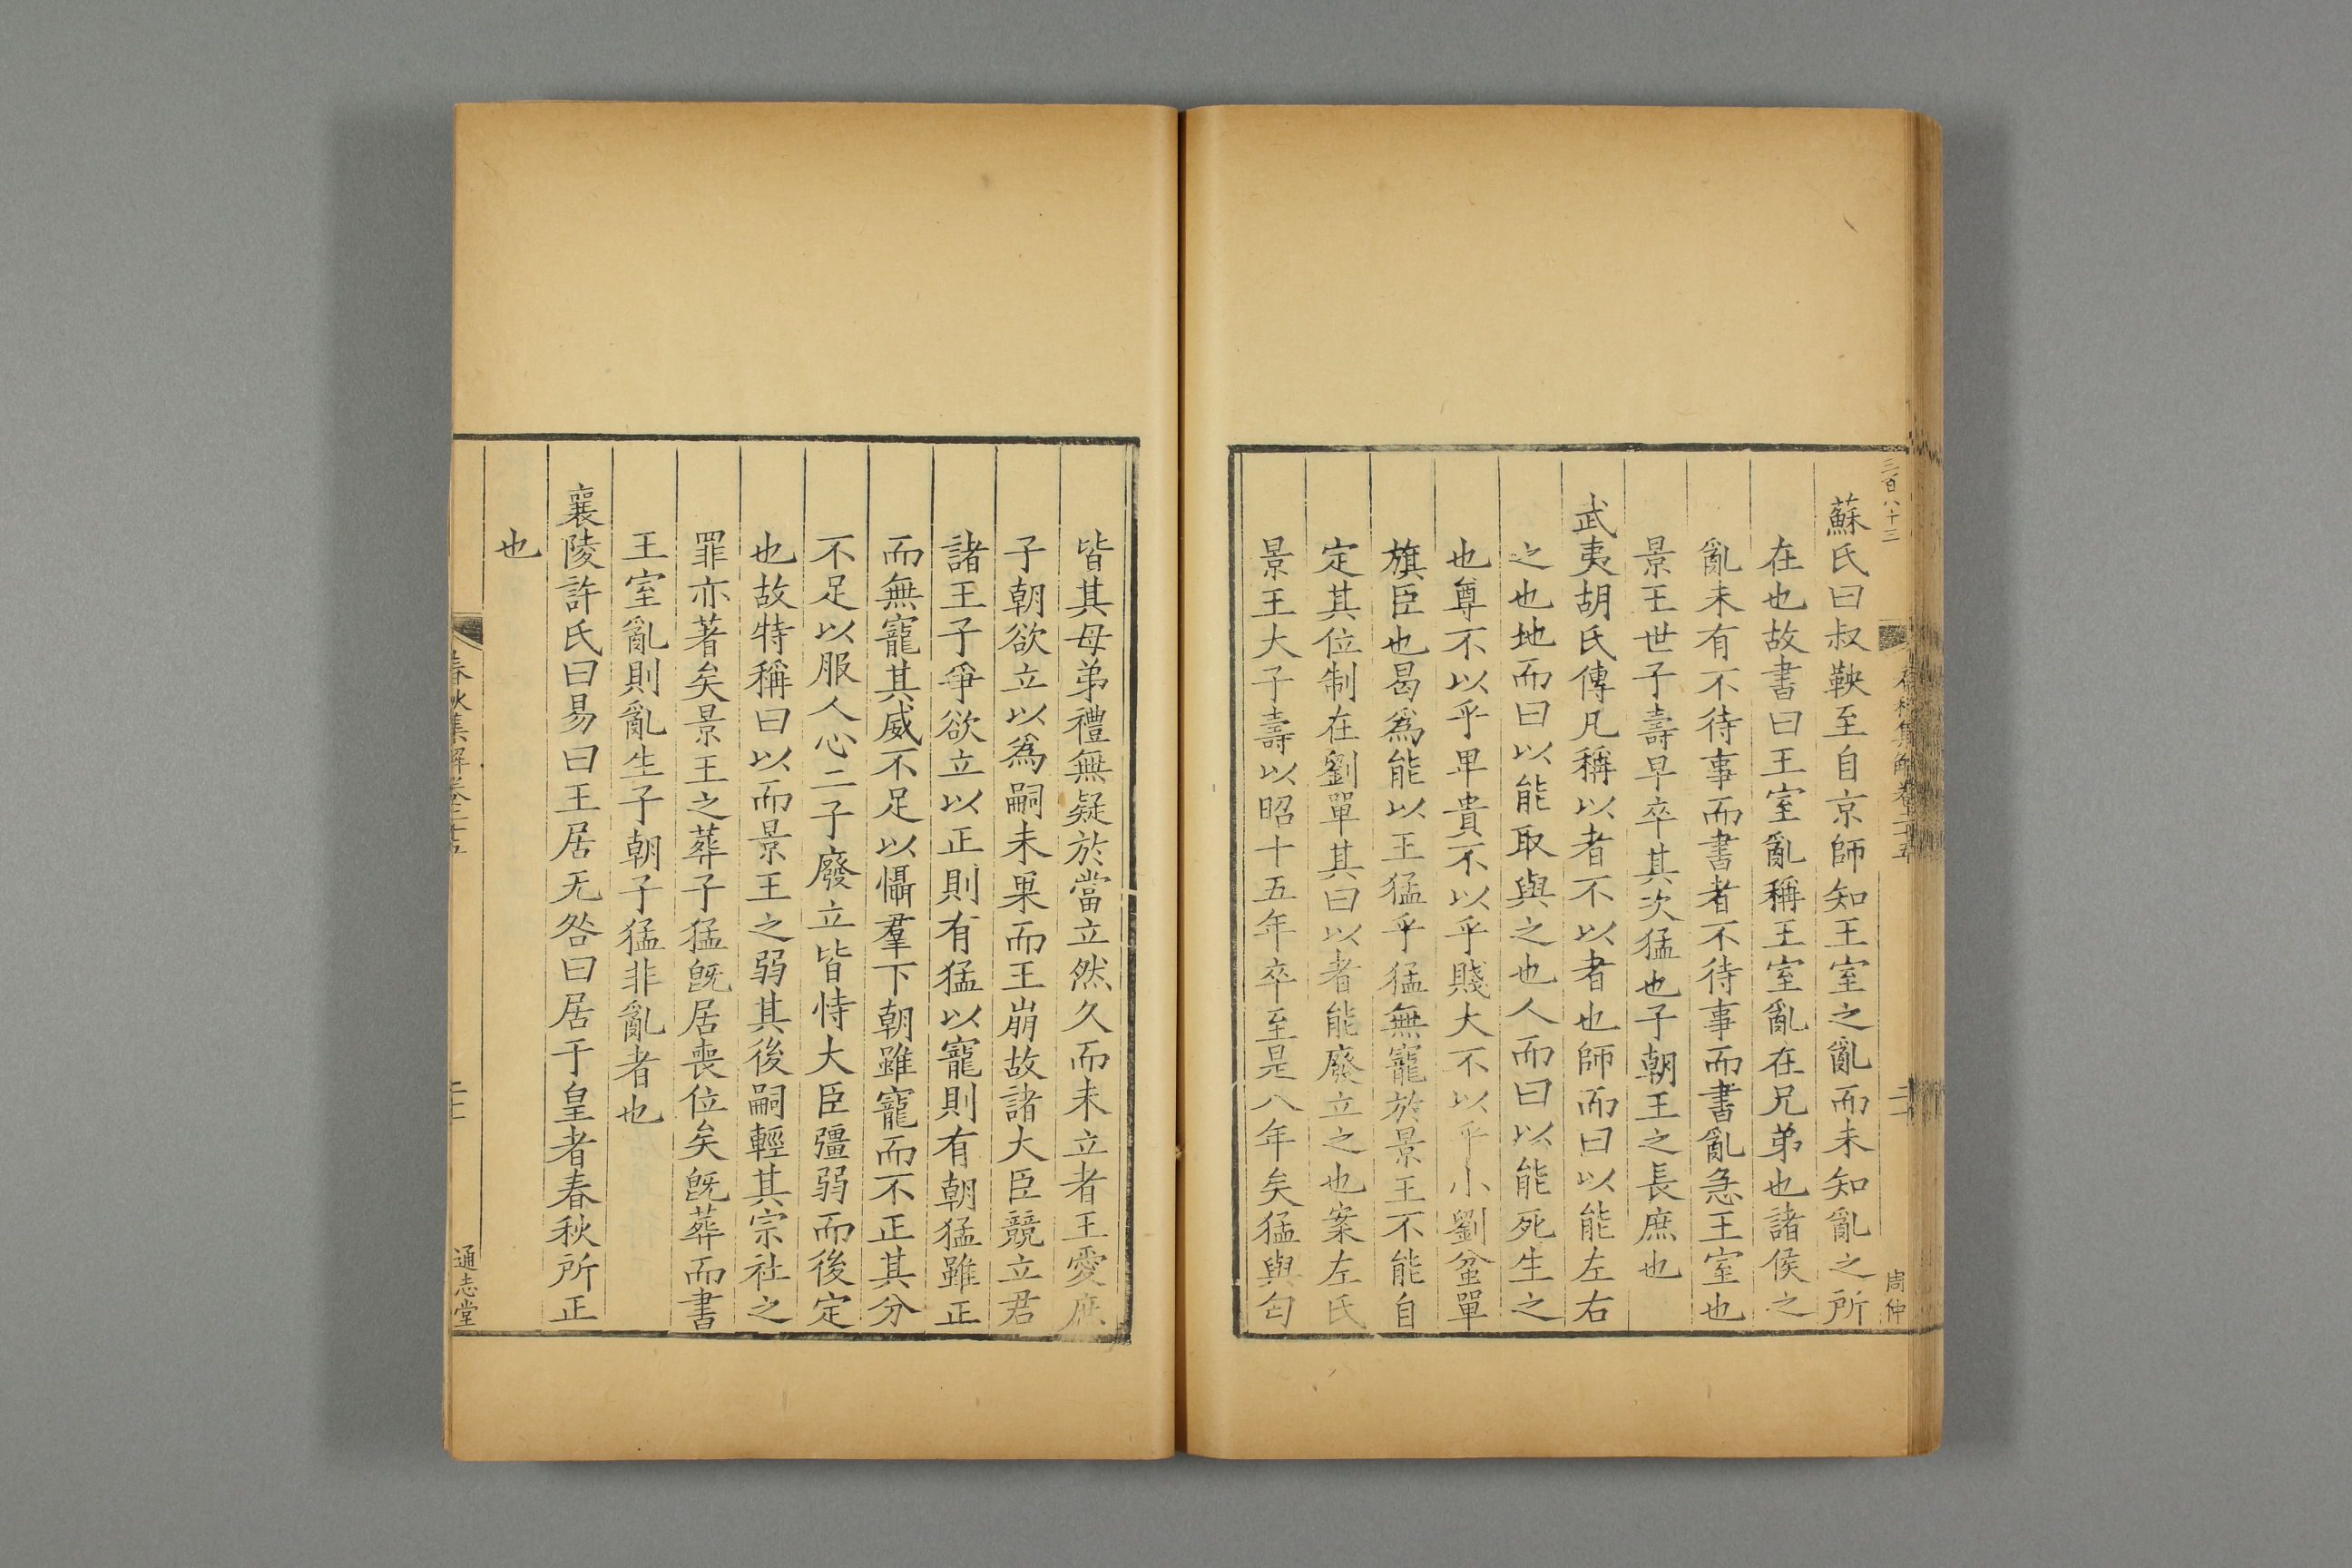 三百八十三
春秋集解卷二十五
周仲
蘇氏曰叔鞅至自京師知王室之亂而未知亂之所
在也故書曰王室亂稱王室亂在兄弟也諸侯之
亂未有不待事而書者不待事而書亂急王室也
景王世子壽早卒其次猛也子朝王之長庶也
武夷胡氏傳凡稱以者不以者也師而曰以能左右
之也地而曰以能取與之也人而曰以能死生之
也尊不以乎卑貴不以乎賤大不以乎小劉蚠單
旗臣也曷爲能以王猛乎猛無寵於景王不能自
定其位制在劉單其曰以者能廢立之也案左氏
景王大子壽以昭十五年卒至是八年矣猛與匄
皆其母弟禮無疑於當立然久而未立者王愛庶
子朝欲立以爲嗣未果而王崩故諸大臣競立君
諸王子爭欲立以正則有猛以寵則有朝猛雖正
而無寵其威不足以懾羣下朝雖寵而不正其分
不足以服人心二子廢立皆恃大臣彊弱而後定
也故特稱曰以而景王之弱其後嗣輕其宗社之
罪亦著矣景王之葬子猛旣居喪位矣旣葬而書
王室亂則亂生子朝子猛非亂者也
襄陵許氏曰易曰王居无咎曰居于皇者春秋所正
也
春秋集解卷二十五
通志堂